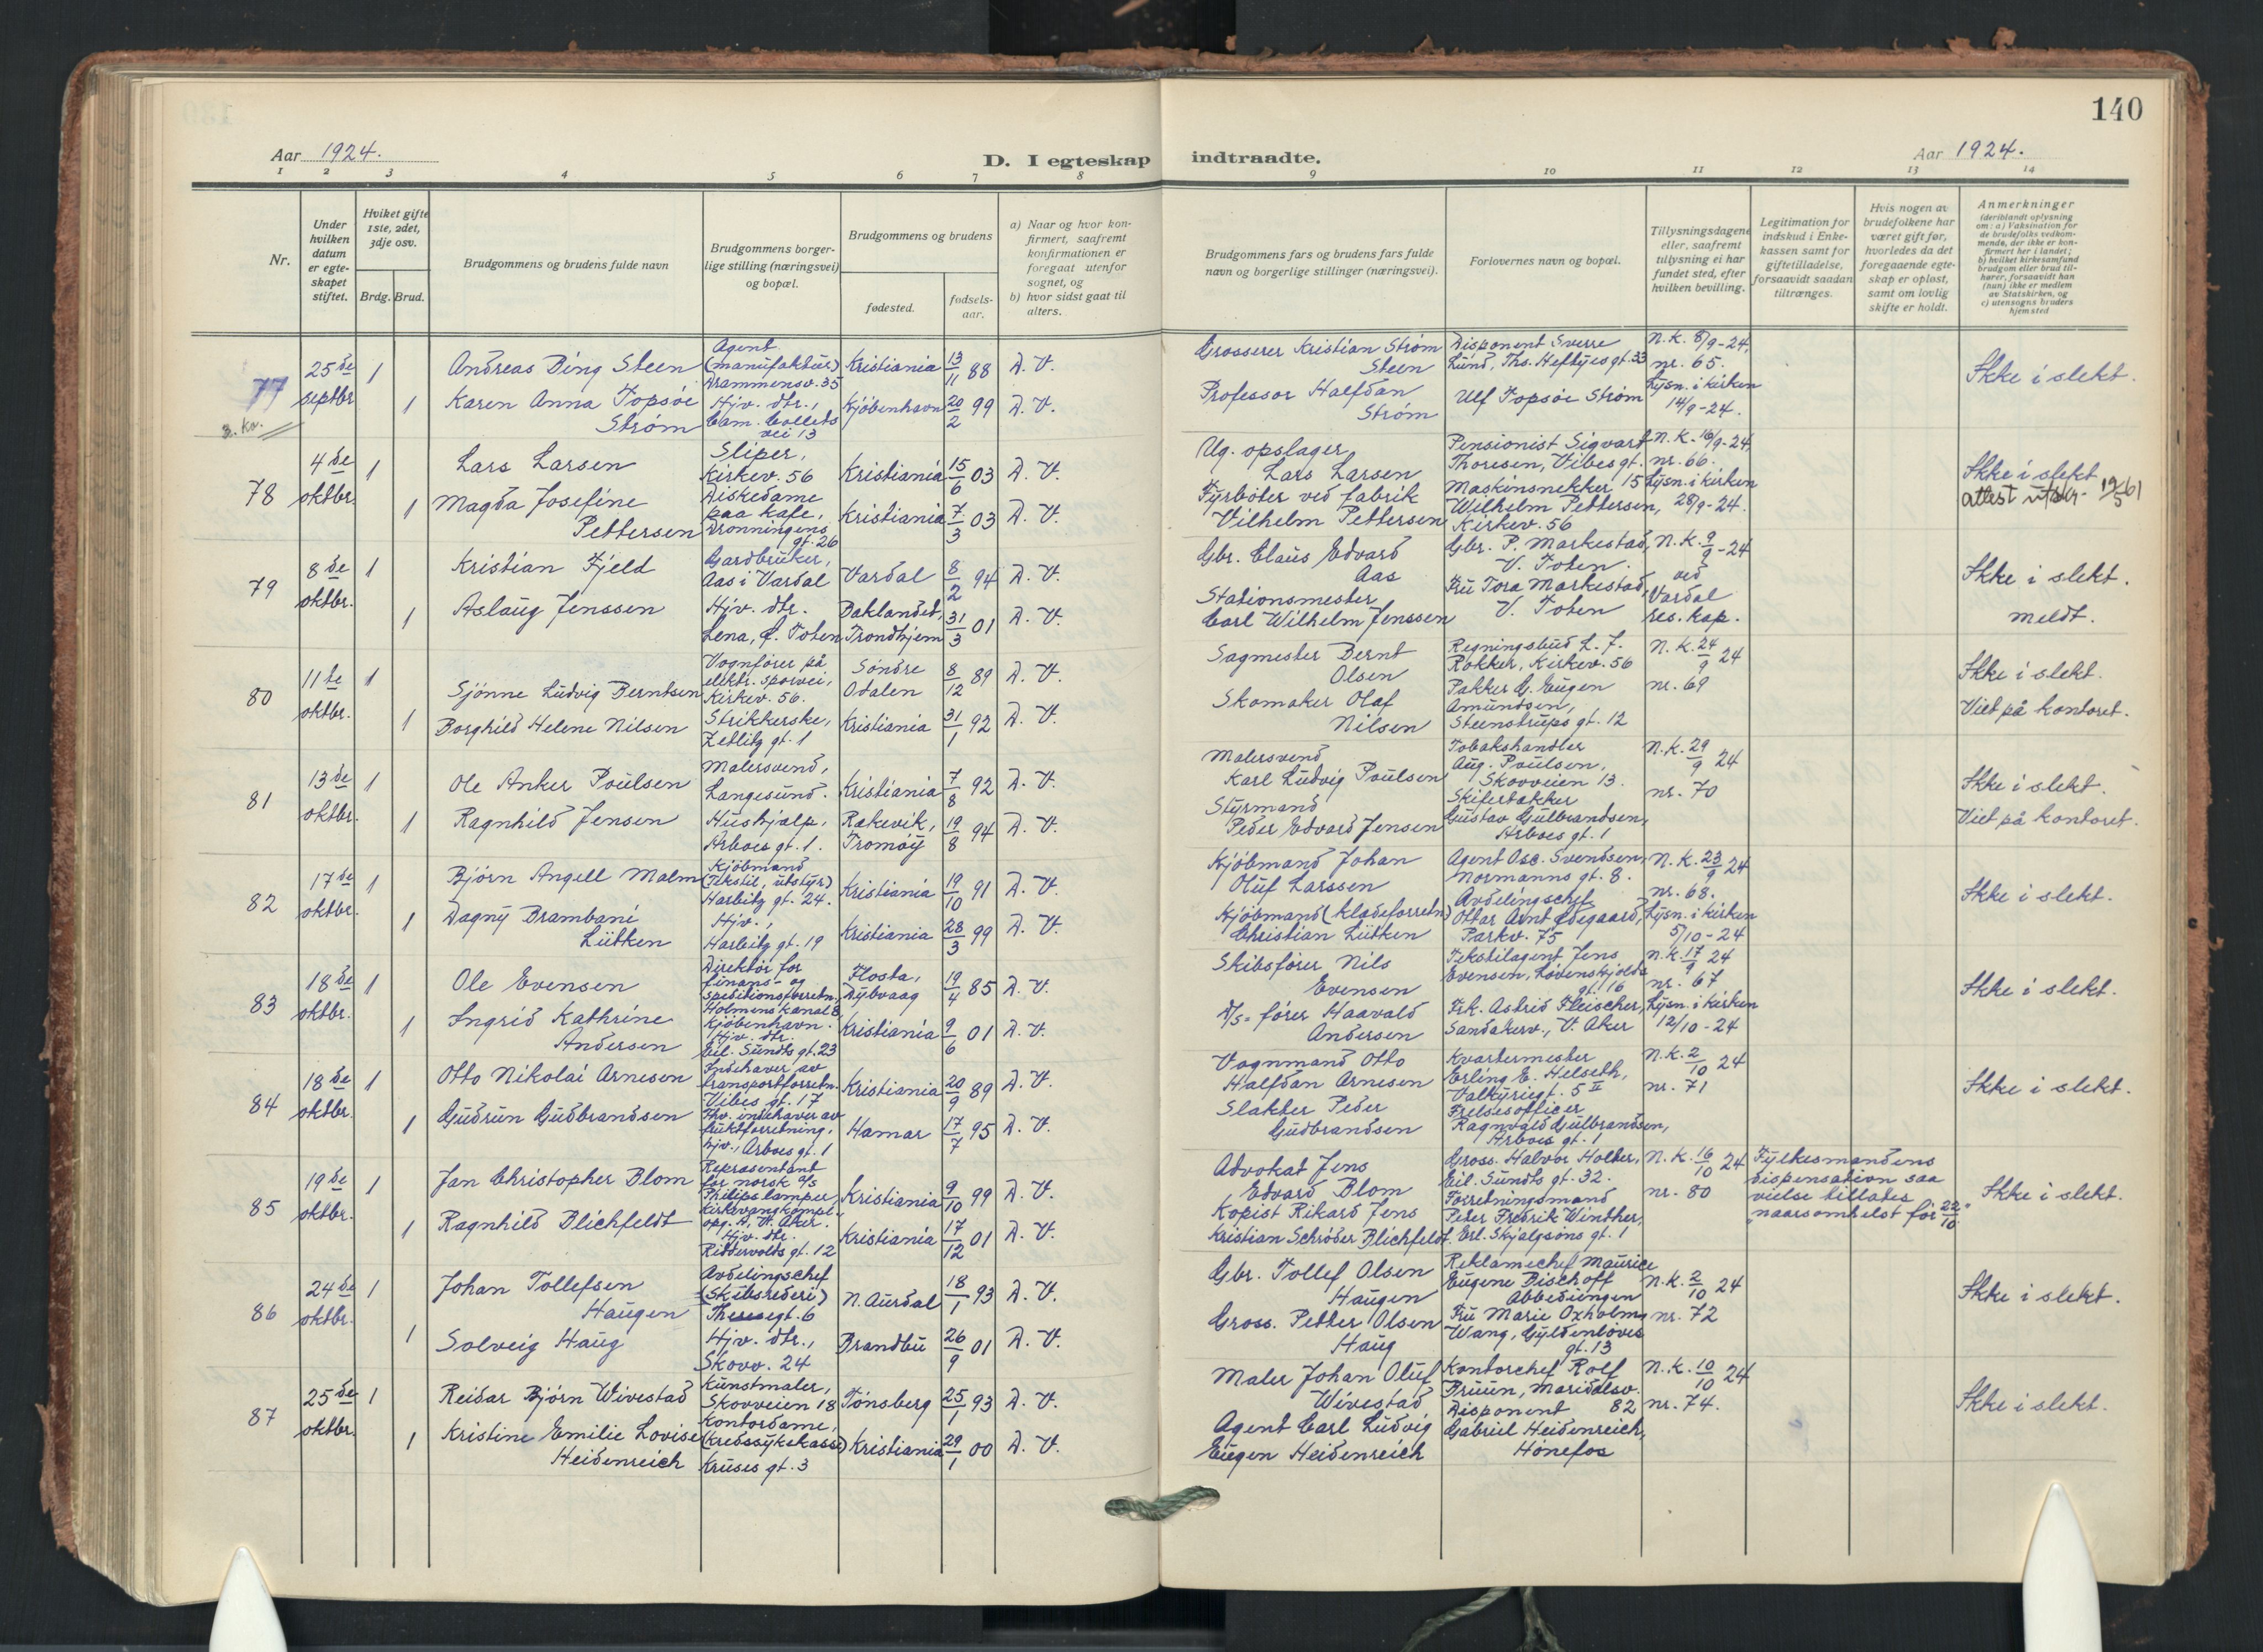 140
Aar 1924.
D. I egteskap indtraadte.
Aar 1924.
1 2 3 4 5 6 7 8 9 10 11 12 13 14
Nr.
Under hvilken datum er egteskapet stiftet.
Hviket gifte 1ste, 2det, 3dje osv.
Brdg. Brud.
Brudgommens og brudens fulde navn
Brudgommens borgerlige stilling (næringsvei) og bopæl.
Brudgommens og brudens
fødested.
fødselsaar.
a) Naar og hvor konfirmert, saafremt konfirmationen er foregaat utenfor sognet, og
b) hvor sidst gaat til alters.
Brudgommens fars og brudens fars fulde navn og borgerlige stillinger (næringsvei).
Forlovernes navn og bopæl.
Tillysningsdagene eller, saafremt tillysning ei har fundet sted, efter hvilken bevilling.
Legitimation for indskud i Enkekassen samt for giftetilladelse, forsaavidt saadan tiltrænges.
Hvis nogen av brudefolkene har været gift før, hvorledes da det foregaaende egteskap er opløst, samt om lovlig skifte er holdt.
Anmerkninger
(deriblandt oplysning om: a) Vaksination for de brudefolks vedkommende, der ikke er konfirmert her i landet; b) hvilket kirkesamfund brudgom eller brud tilhører, forsaavidt han (hun) ikke er medlem av Statskirken, og c) utensogns bruders hjemsted
77
3. kv.
25de septbr.
1
Andreas Ding Steen
Agent (manufaktur) Drammensv. 35
Kristiania
13/11 88
D. V.
Grosserer Kristian Strøm Steen
Disponent Sverre Lund, Ths. Heftyes gt. 33
N. K. 8/9-24, nr. 65.
Lysn. i kirken 14/9-24.
Ikke i slekt.
1
Karen Anna Topsøe Strøm
Hjv. dtr., Cam. Colletts vei 13
Kjøbenhavn
20/2 99
D. V.
Professor Halfdan Strøm
Ulf Topsøe Strøm
78
4de oktbr.
1
Lars Larsen
Sliper, Kirkev. 56
Kristiania
15/6 03
D. V.
Ug. opslager Lars Larsen
Pensionist Sigvart Thoresen, Vibes gt. 15
N. K. 16/9-24, nr. 66.
Lysn. i kirken 28/9-24.
Ikke i slekt
attest utskr. 12/5 61
1
Magda Josefine Pettersen
Diskedame paa kafe, Dronningens gt. 26
Kristiania
7/3 03
D. V.
Fyrbøter ved fabrik Vilhelm Pettersen
Maskinsnekker Wilhelm Pettersen, Kirkev. 56
79
8de oktbr.
1
Kristian Fjeld
Gardbruker, Aas i Vardal
Vardal
8/2 94
D. V.
Gbr. Claus Edvard Aas
Gbr. P. Markestad, V. Toten.
N. K. 9/9-24 ved Vardal res. kap.
Ikke i slekt.
meldt.
1
Aslaug Jenssen
Hjv. dtr. Lena, Ø. Toten
Baklandet, Trondhjem
31/3 01
D. V.
Stationsmester Carl Wilhelm Jenssen
Fru Tora Markestad, V. Toten
80
11te oktbr.
1
Sjønne Ludvig Berntsen
Vognfører på elektr. sporvei, Kirkev. 56.
Søndre Odalen
8/12 89
D. V.
Sagmester Bernt Olsen
Regningsbud L. F. Rokker, Kirkev. 56
N. K. 24/9 24
nr. 69
Ikke i slekt.
Viet på kontoret.
1
Borghild Helene Nilsen
Strikkerske, Zetlitz gt. 1
Kristiania
31/1 92
D. V.
Skomaker Olaf Nilsen
Pakker G. Eugen Amundsen, Steenstrups gt. 12
81
13de oktbr.
1
Ole Anker Poulsen
Malersvend, Langesund.
Kristiania
7/8 92
D. V.
Malersvend Karl Ludvig Poulsen
Tobakshandler Aug. Poulsen, Skovveien 13.
N. K. 29/9 24
nr. 70
Ikke i slekt.
Viet på kontoret.
1
Ragnhild Jensen
Hushjælp, Arboes gt. 1.
Rækevik, Tromøy
19/8 94
D. V.
Styrmand Peder Edvard Jensen
Skifertækker Gustav Gulbrandsen, Arboes gt. 1
82
17de oktbr.
1
Bjørn Angell Malm
Kjøbmand (Tekstil, utstyr) Harbitz gt. 24.
Kristiania
19/10 91
D. V.
Kjøbmand Johan Oluf Larssen
Agent Osc. Svendsen, Normanns gt. 8.
N. K. 23/9 24
nr. 68.
Lysn. i kirken 5/10-24
Ikke i slekt.
1
Dagny Brambani Lütken
Hjv., Harbitz gt. 19
Kristiania
28/3 99
D. V.
Kjøbmand (klædeforretn) Christian Lütken
Avdelingschef Ottar Arnt Ødegaard, Parkv. 75
83
18de oktbr.
1
Ole Evensen
Direktør for finans- og speditionsforretn. Holmens kanal 8, Kjøbenhavn.
Flosta, Dybvaag
19/4 85
D. V.
Skibsfører Nils Evensen
Tekstilagent Jens Evensen, Løvenskjolds gt. 16
N. K. 17/9 24
nr. 67
Lysn. i kirken 12/10-24
Ikke i slekt.
1
Ingrid Kathrine Andersen
Hjv. dtr. Eil. Sundts gt. 23
Kristiania
9/6 01
D. V.
D/S= fører Haavald Andersen
Frk. Astrid Fleischer, Sandakerv., V. Aker
84
18de oktbr.
1
Otto Nikolai Arnesen
Indehaver av transportforretn. Vibes gt. 17
Kristiania
20/9 89
D. V.
Vognmand Otto Halfdan Arnesen
Kvartermester Erling E. Helseth, Valkyriegt. 5 II
N. K. 2/10 24
nr. 71
Ikke i slekt.
1
Gudrun Gudbrandsen
Fhv. indehaver av fruktforretning, hjv., Arboes gt. 1
Hamar
17/7 95
D. V.
Slakter Peder Gudbrandsen
Frelsesofficer Ragnvald Gulbrandsen, Arboes gt. 1
85
19de oktbr.
1
Jan Christopher Blom
Repræsentant for norsk A/S Philips lamper, Kirkevangkompl., opg. A, V. Aker.
Kristiania
9/10 99
D. V.
Advokat Jens Edvard Blom
Gross. Halvor Holter, Eil. Sundts gt. 32.
N. K. 16/10 24
nr. 80
Fylkesmandens dispensation saa vielse tillates "naarsomhelst før 22/10"
Ikke i slekt.
1
Ragnhild Blichfeldt
Hjv. dtr. Riddervolds gt. 12
Kristiania
17/12 01
D. V.
Kopist Rikard Jens Kristian Schrøder Blichfeldt
Forretningsmand Peter Fredrik Winther, Erl. Skjalgsøns gt. 1
86
24de oktbr.
1
Johan Tollefsen Haugen
Avdelingschef (Skibsrederi) Theresegt. 6
N. Aurdal
18/1 93
D. V.
Gbr. Tollef Olsen Haugen
Reklamechef Maurice Eugene Bischoff Abbediengen
N. K. 2/10 24
nr. 72
Ikke i slekt.
1
Solveig Haug
Hjv. dtr., Skovv. 24
Brandbu
26/9 01
D. V.
Gross. Petter Olsen Haug
Fru Marie Oxholm Wang, Gyldenløves gt. 13
87
25de oktbr.
1
Reidar Bjørn Wivestad
Kunstmaler, Skovveien 18
Tønsberg
25/1 93
D. V.
Maler Johan Oluf Wivestad
Kontorchef Rolf Bruun, Maridalsv. 82
N. K. 10/10 24
nr. 74.
Ikke i slekt.
1
Kristine Emilie Lovise Heidenreich
Kontordame, (Kredssykekasse) Kruses gt. 3
Kristiania
29/1 00
D. V.
Agent Carl Ludvig Eugen Heidenreich
Disponent Gabriel Heidenreich, Hønefos